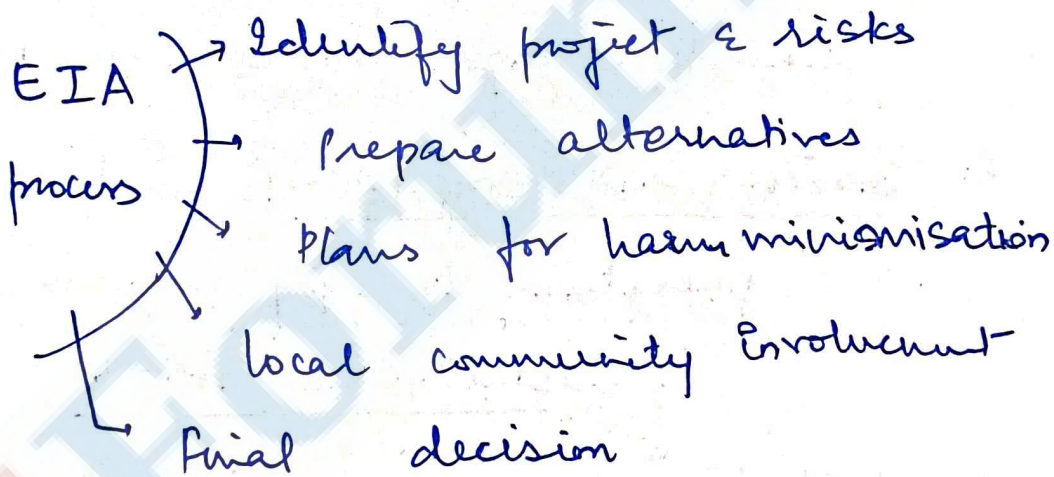 EIA process
Identify project & risks
Prepare alternatives
Plans for harm minismisation
local community involvement
Final decision
Forum